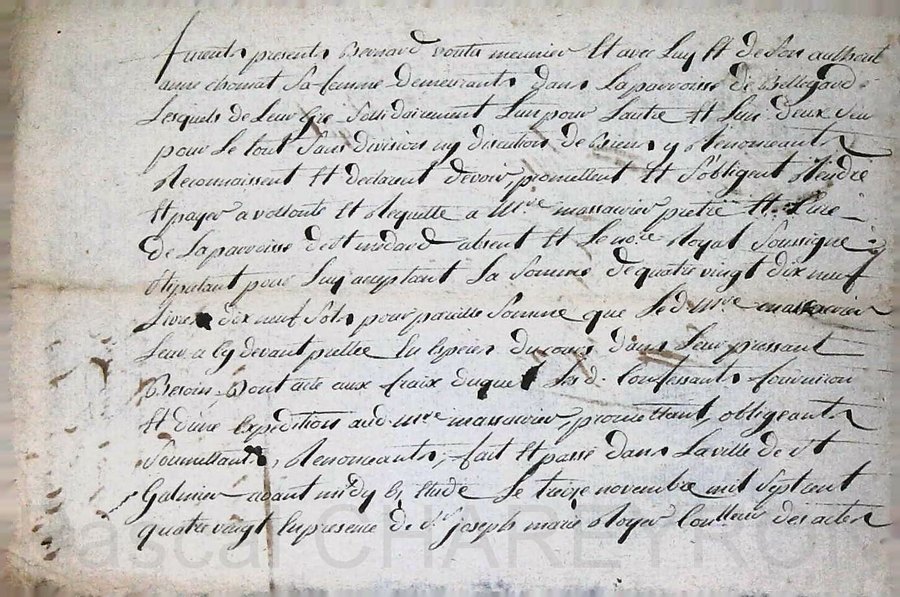 furent presents Bernard meunier et avec luy et de son authorité
anne chomat sa femme demeurants dans la parroisse de Bellegarde
Lesquels de leur gre solidairement l'un pour l'autre et l'un d'eux seul
pour le tout sans division ny discution de biens y Renonceants
Reconnoissent et declarent devoir, promettent et s'obligent Rendre
et payer a vollonté et Requette a Mre massacrier pretre et Curé
de la parroisse de st medard absent et le nore Royal soussigné
stipulant pour luy acceptant la somme de quatre vingt dix neuf
Livres dix neuf sols pour pareille somme que led. Mre massacrier
leur a cy devant prettée en especes du cours dans leur pressant
Besoin, Dont acte aux fraix duquel lesd. Confessants fourniron
et d'une expedition aud. Mre massacrier, promettant, obligeants
soumettants, Renonceants, fait et passé dans la ville de st
Galmier avant midy en etude Le treize novembre mil sept cent
quatre vingt en presence de sr joseph marie Royer Contrleur des actes
Pascal CHAREYRON